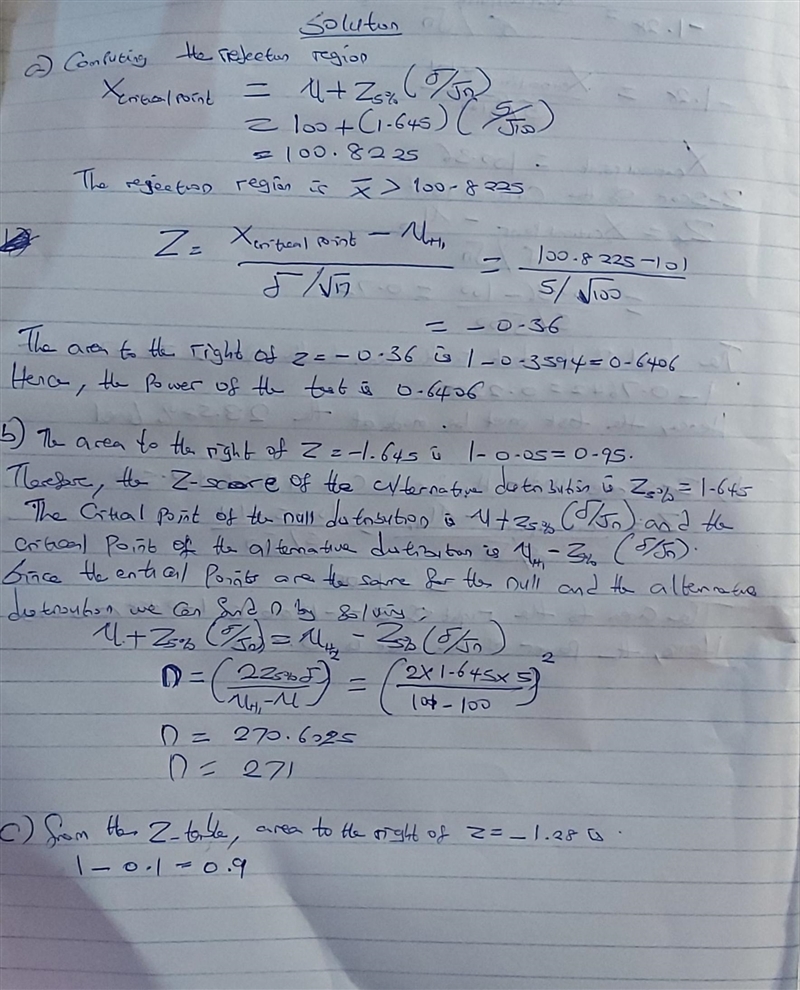 Solution
a) Computing the rejection region
Xcritical point = μ + Z5% (σ/√n)
= 100 + (1.645) (5/√100)
= 100.8225
The rejection region is x̄ > 100.8225
Z = Xcritical point - μH1 / σ/√n = 100.8225-101 / 5/√100
= -0.36
The area to the right of z = -0.36 is 1-0.3594 = 0.6406
Hence, the Power of the test is 0.6406
b) The area to the right of Z = -1.645 is 1-0.05 = 0.95.
Therefore, the Z-score of the alternative distribution is Z5% = 1.645
The Critical Point of the null distribution is μ + Z5% (σ/√n) and the
critical Point of the alternative distribution is μH1 - Z5% (σ/√n).
Since the critical Points are the same for the null and the alternative
distribution we can find n by solving;
μ + Z5% (σ/√n) = μH1 - Z5% (σ/√n)
n = (2Z5% σ / μH1 - μ)² = (2×1.645×5 / 101-100)²
n = 270.6025
n = 271
c) from the Z-table, area to the right of z = -1.28 is
1 - 0.1 = 0.9